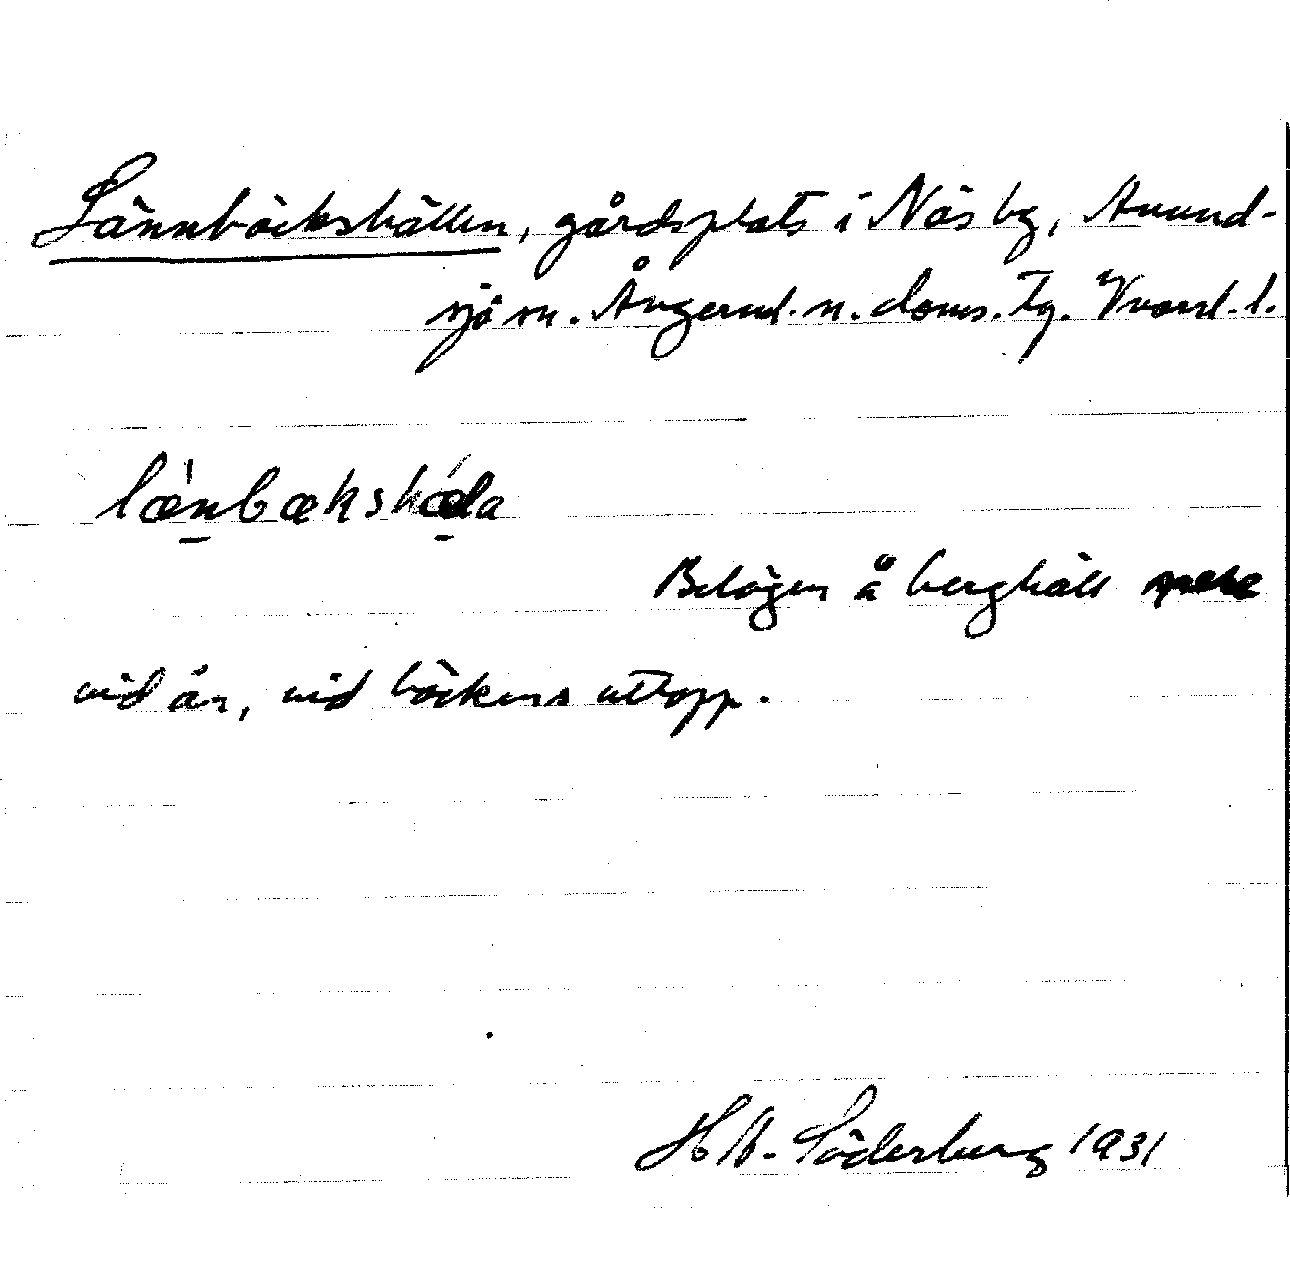 Lännbäckshällen, gårdsplats i Näs by, Anund-
sjö sn. Ångerml. n. doms. Tg. Vnorrl. l.
læ̀nbækshǽla
Belägen å berghäll
vid ån, vid bäckens utlopp.
H W. Söderberg 1931